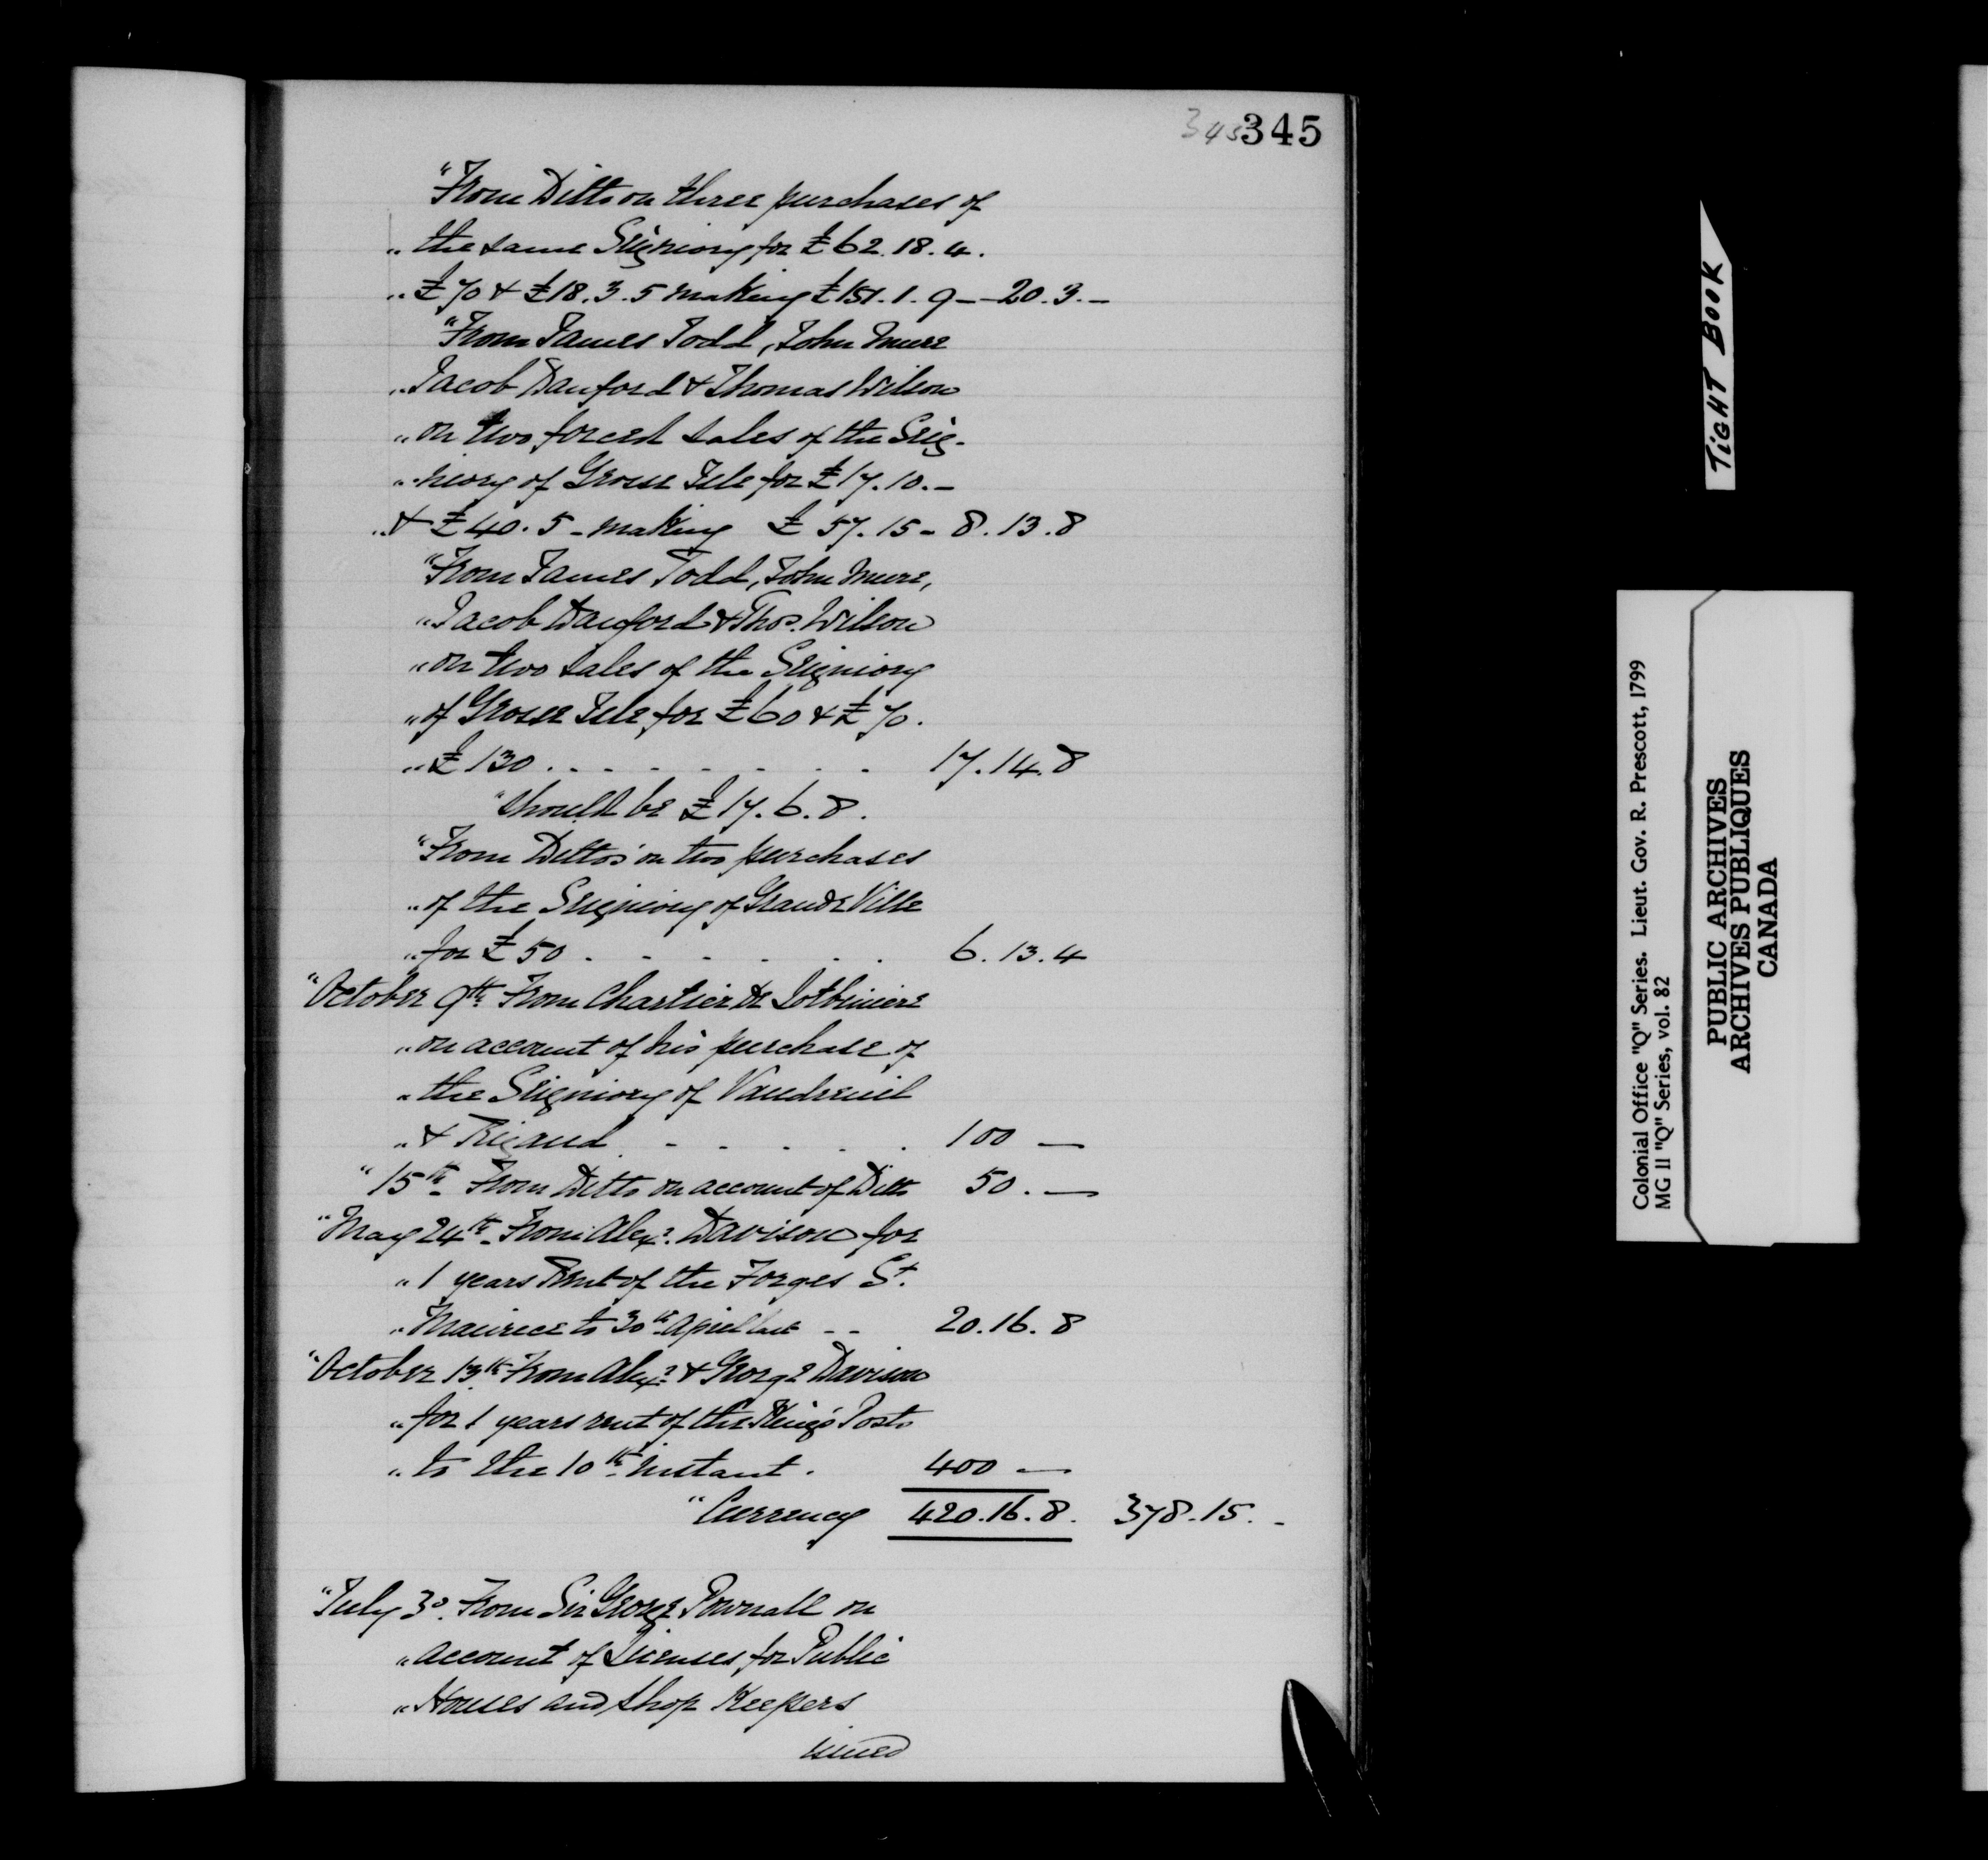 345 345
"From Ditto on three purchases of
" the same Seigniory for £62.18.4.
" £70 & £18.3.5 making £151.1.9 — 20.3.—
"From James Todd, John Mure
" Jacob Danford & Thomas Wilson
" on two forced sales of the Seig-
" niory of Grosse Isle for £17.10.—
" & £40.5 - making £57.15 - 8.13.8
"From James Todd, John Mure,
" Jacob Danford & Thos. Wilson
" on two sales of the Seigniory
" of Grosse Isle for £60 & £70.
" £130 . . - - - - - . 17.14.8
"should be £17.6.8.
"From Dittos on two purchases
" of the Seigniory of Grande Ville
" for £50 . - - - - - . 6.13.4
"October 9th. From Chartier de Lotbiniere
" on account of his purchase of
" the Seigniory of Vaudreuil
" & Rigaud . - - - - . 100 —
" 15th. From Ditto on account of Ditto 50. —
"May 24th. From Alexr. Davison for
" 1 years Rent of the Forges St.
" Maurice to 30th. April last - - 20.16.8
"October 13th. From Alexr. & George Davison
" for 1 years rent of the King's Posts
" to the 10th. instant . 400 —
"Currency 420.16.8. 378.15. -
"July 3d. From Sir George Pownall on
" account of Licenses for Public
" Houses and Shop Keepers
issued
TiGHT BOOK
Colonial Office "Q" Series. Lieut. Gov. R. Prescott, 1799
MG II "Q" Series, vol. 82
PUBLIC ARCHIVES
ARCHIVES PUBLIQUES
CANADA